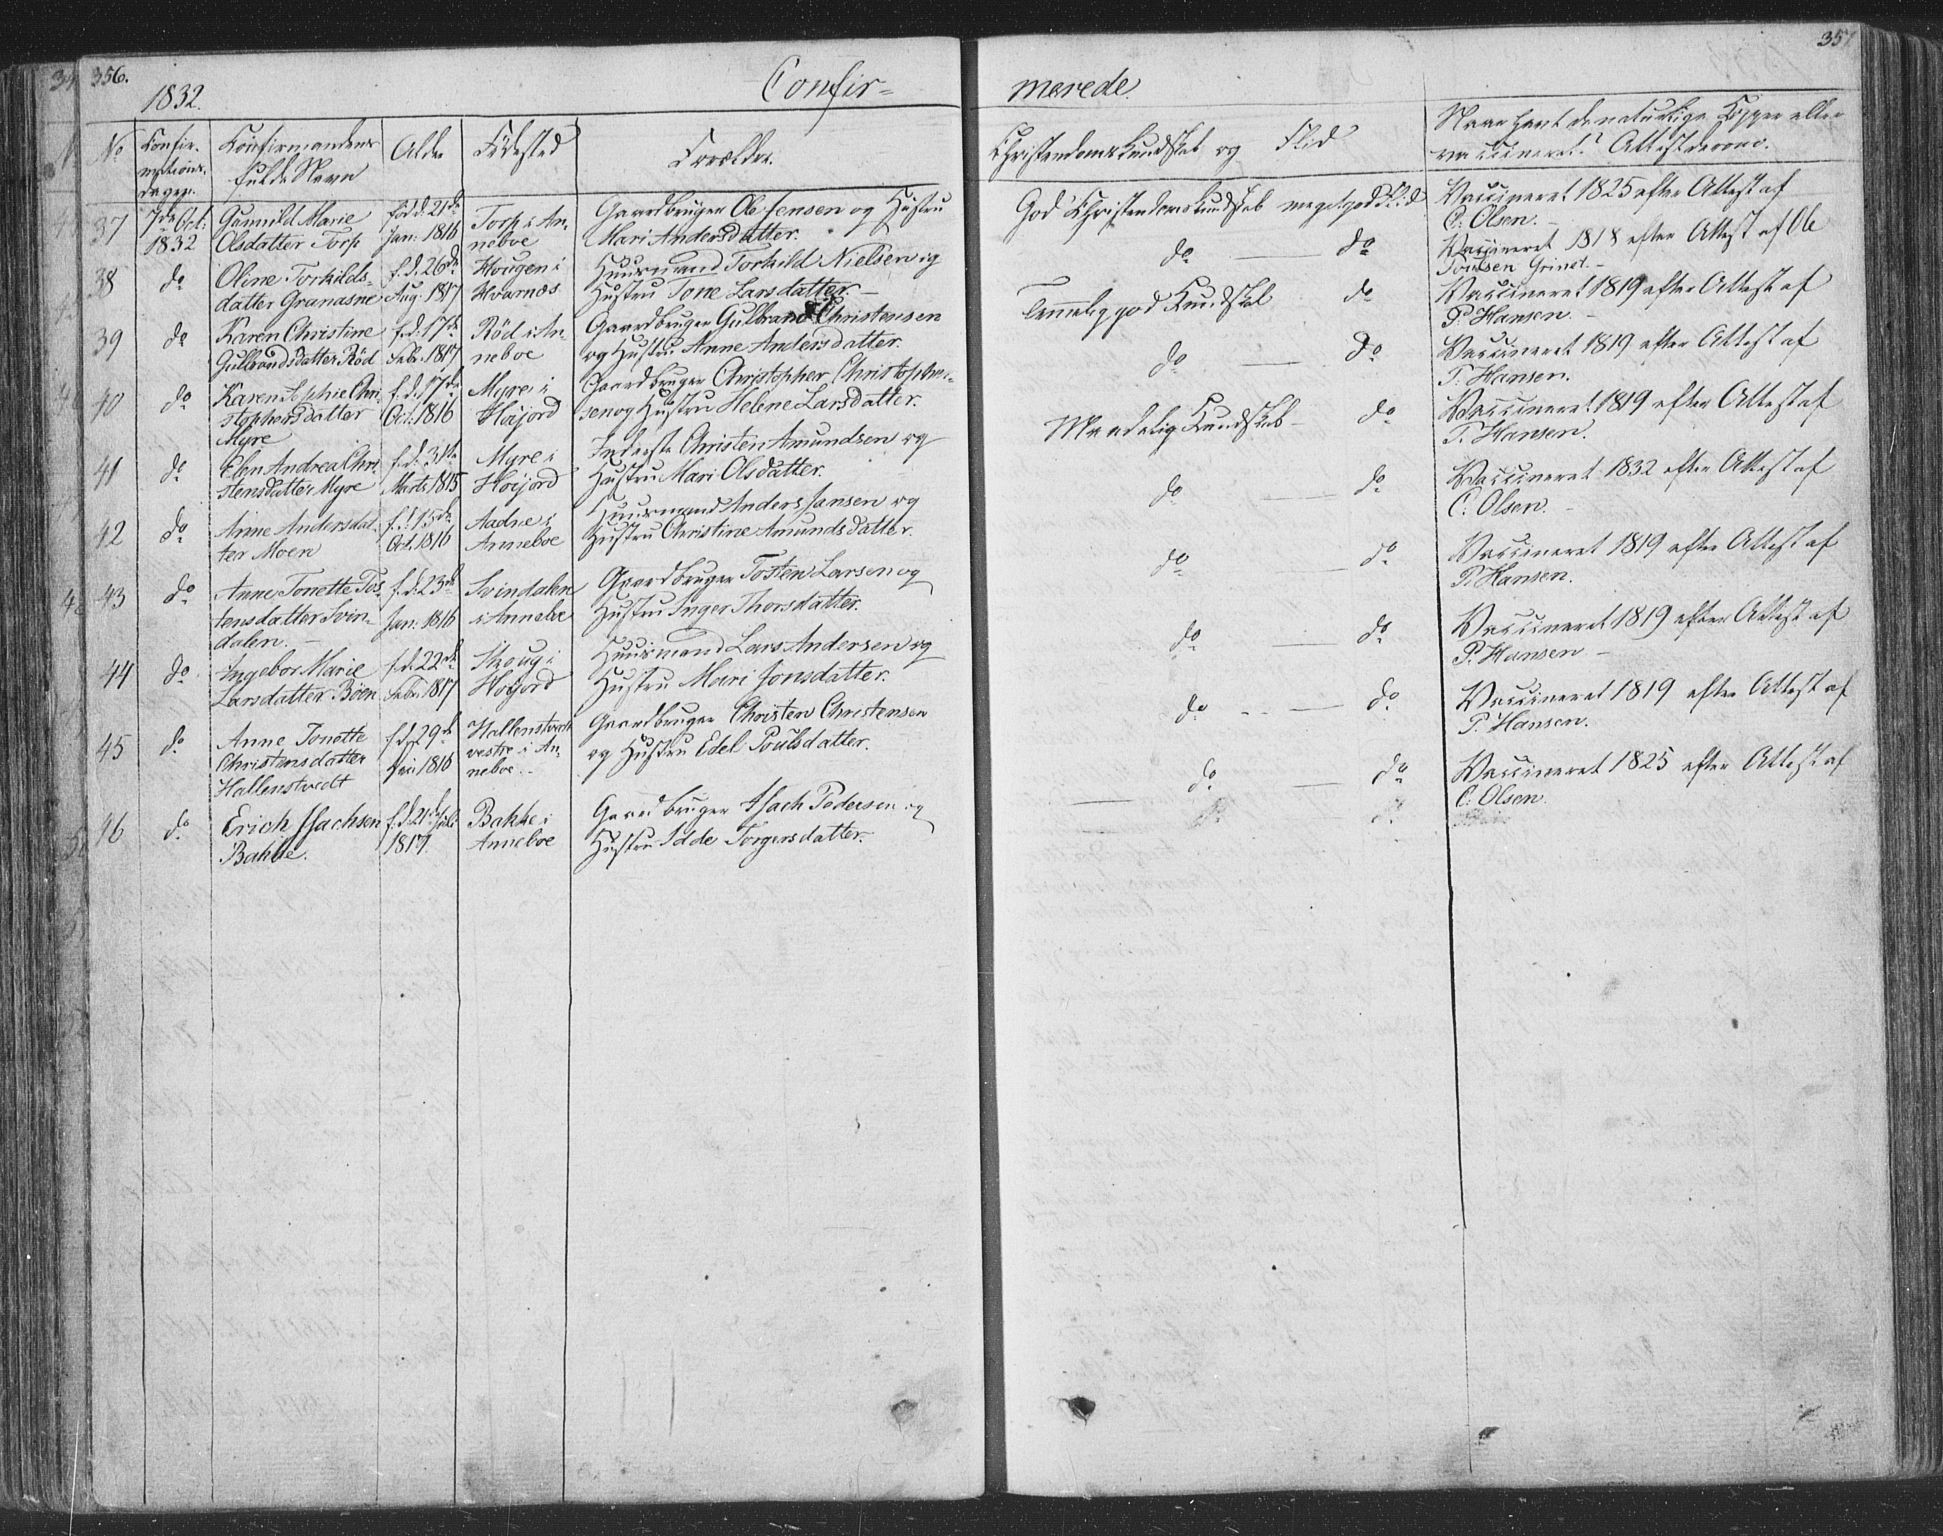 356.
1832.
Confir=
No
Confir-
mations-
dagen.
Confirmandens
fulde Navn
Alder
Födested
Forældre.
37
7de Oct:
1832
Gunnild Marie
Olsdatter Torp
född. 21de
Jan: 1816
Torp i An-
neboe
Gaardbruger Ole Jensen og Hustru
Mari Andersdatter.
38
do
Oline Torkilds-
datter Granasne
f.d. 26de
Aug. 1817
Hougen i
Hvarnes
Huusmand Torkild Nielsen og
Hustru Tone Larsdatter
39
do
Karen Christine
Gulbrandsdatter Röd
f.d. 17de
Febr. 1817
Röd i An-
neboe
Gaardbruger Gulbrand Christensen
og Hustru Anne Andersdatter.
40
do
Karen Sophie Chri-
stophersdatter
Myre
f.d. 17de
Oct. 1816
Myre i
Höijord
Gaardbruger Christopher Christopher-
sen og Hustru Helene Larsdatter.
41
do
Elen Andrea Chri-
stensdatter Myre
f.d. 31te
Marts 1815
Myre i
Höijord
Inderste Christen Amundsen og
Hustru Mari Olsdatter.
42
do
Anne Andersdat-
ter Moen
f.d. 15de
Oct. 1816
Aadne i
Anneboe
Huusmand Anders Jansen og
Hustru Christine Amundsdatter.
43
do
Anne Tonette Tos-
tensdatter Svin-
dalen.
f.d. 23de
Jan: 1816
Svindalen
i Anneboe
Gaardbruger Tosten Larsen og
Hustru Inger Thorsdatter.
44
do
Ingebor Marie
Larsdatter Böen
f.d. 22de
Febr. 1817
Skoug i
Höijord
Huusmand Lars Andersen og
Hustru Mari Jonsdatter.
45
do
Anne Tonette
Christensdatter
Hallenstvedt
f.d. 29de
1816
Hallenstvedt
vestre i An-
neboe.
Gaardbruger Christen Christensen
og Hustru Edel Poulsdatter.
46
do
Erich Isachsen
Bakke.
f.d. 21de Juli
1817.
Bakke i
Anneboe
Gaardbruger Isach Pedersen og
Hustru Idde Torgersdatter.
357
merede.
Christendomskundskab og Flid
Naar havt de naturlige Kopper eller
vaccineret? Attest derom.
God Christendomskundskab megetgod Flid
Vaccineret 1825 efter Attest af
C. Olsen.
do do
Vaccineret 1818 efter Attest af Ole
Poulsen Grinet.
Temmelig god Kundskab do
Vaccineret 1819 efter Attest af
P. Hansen.
do do
Vaccineret 1819 efter Attest af
P. Hansen.
Maadelig Kundskab do
Vaccineret 1819 efter Attest af
P. Hansen.
do do
Vaccineret 1832 efter Attest af
C. Olsen.
do do
Vaccineret 1819 efter Attest af
P. Hansen.
do do
Vaccineret 1819 efter Attest af
P. Hansen
do do
Vaccineret 1819 efter Attest af
P. Hansen.
do do
Vaccineret 1825 efter Attest af
C. Olsen.